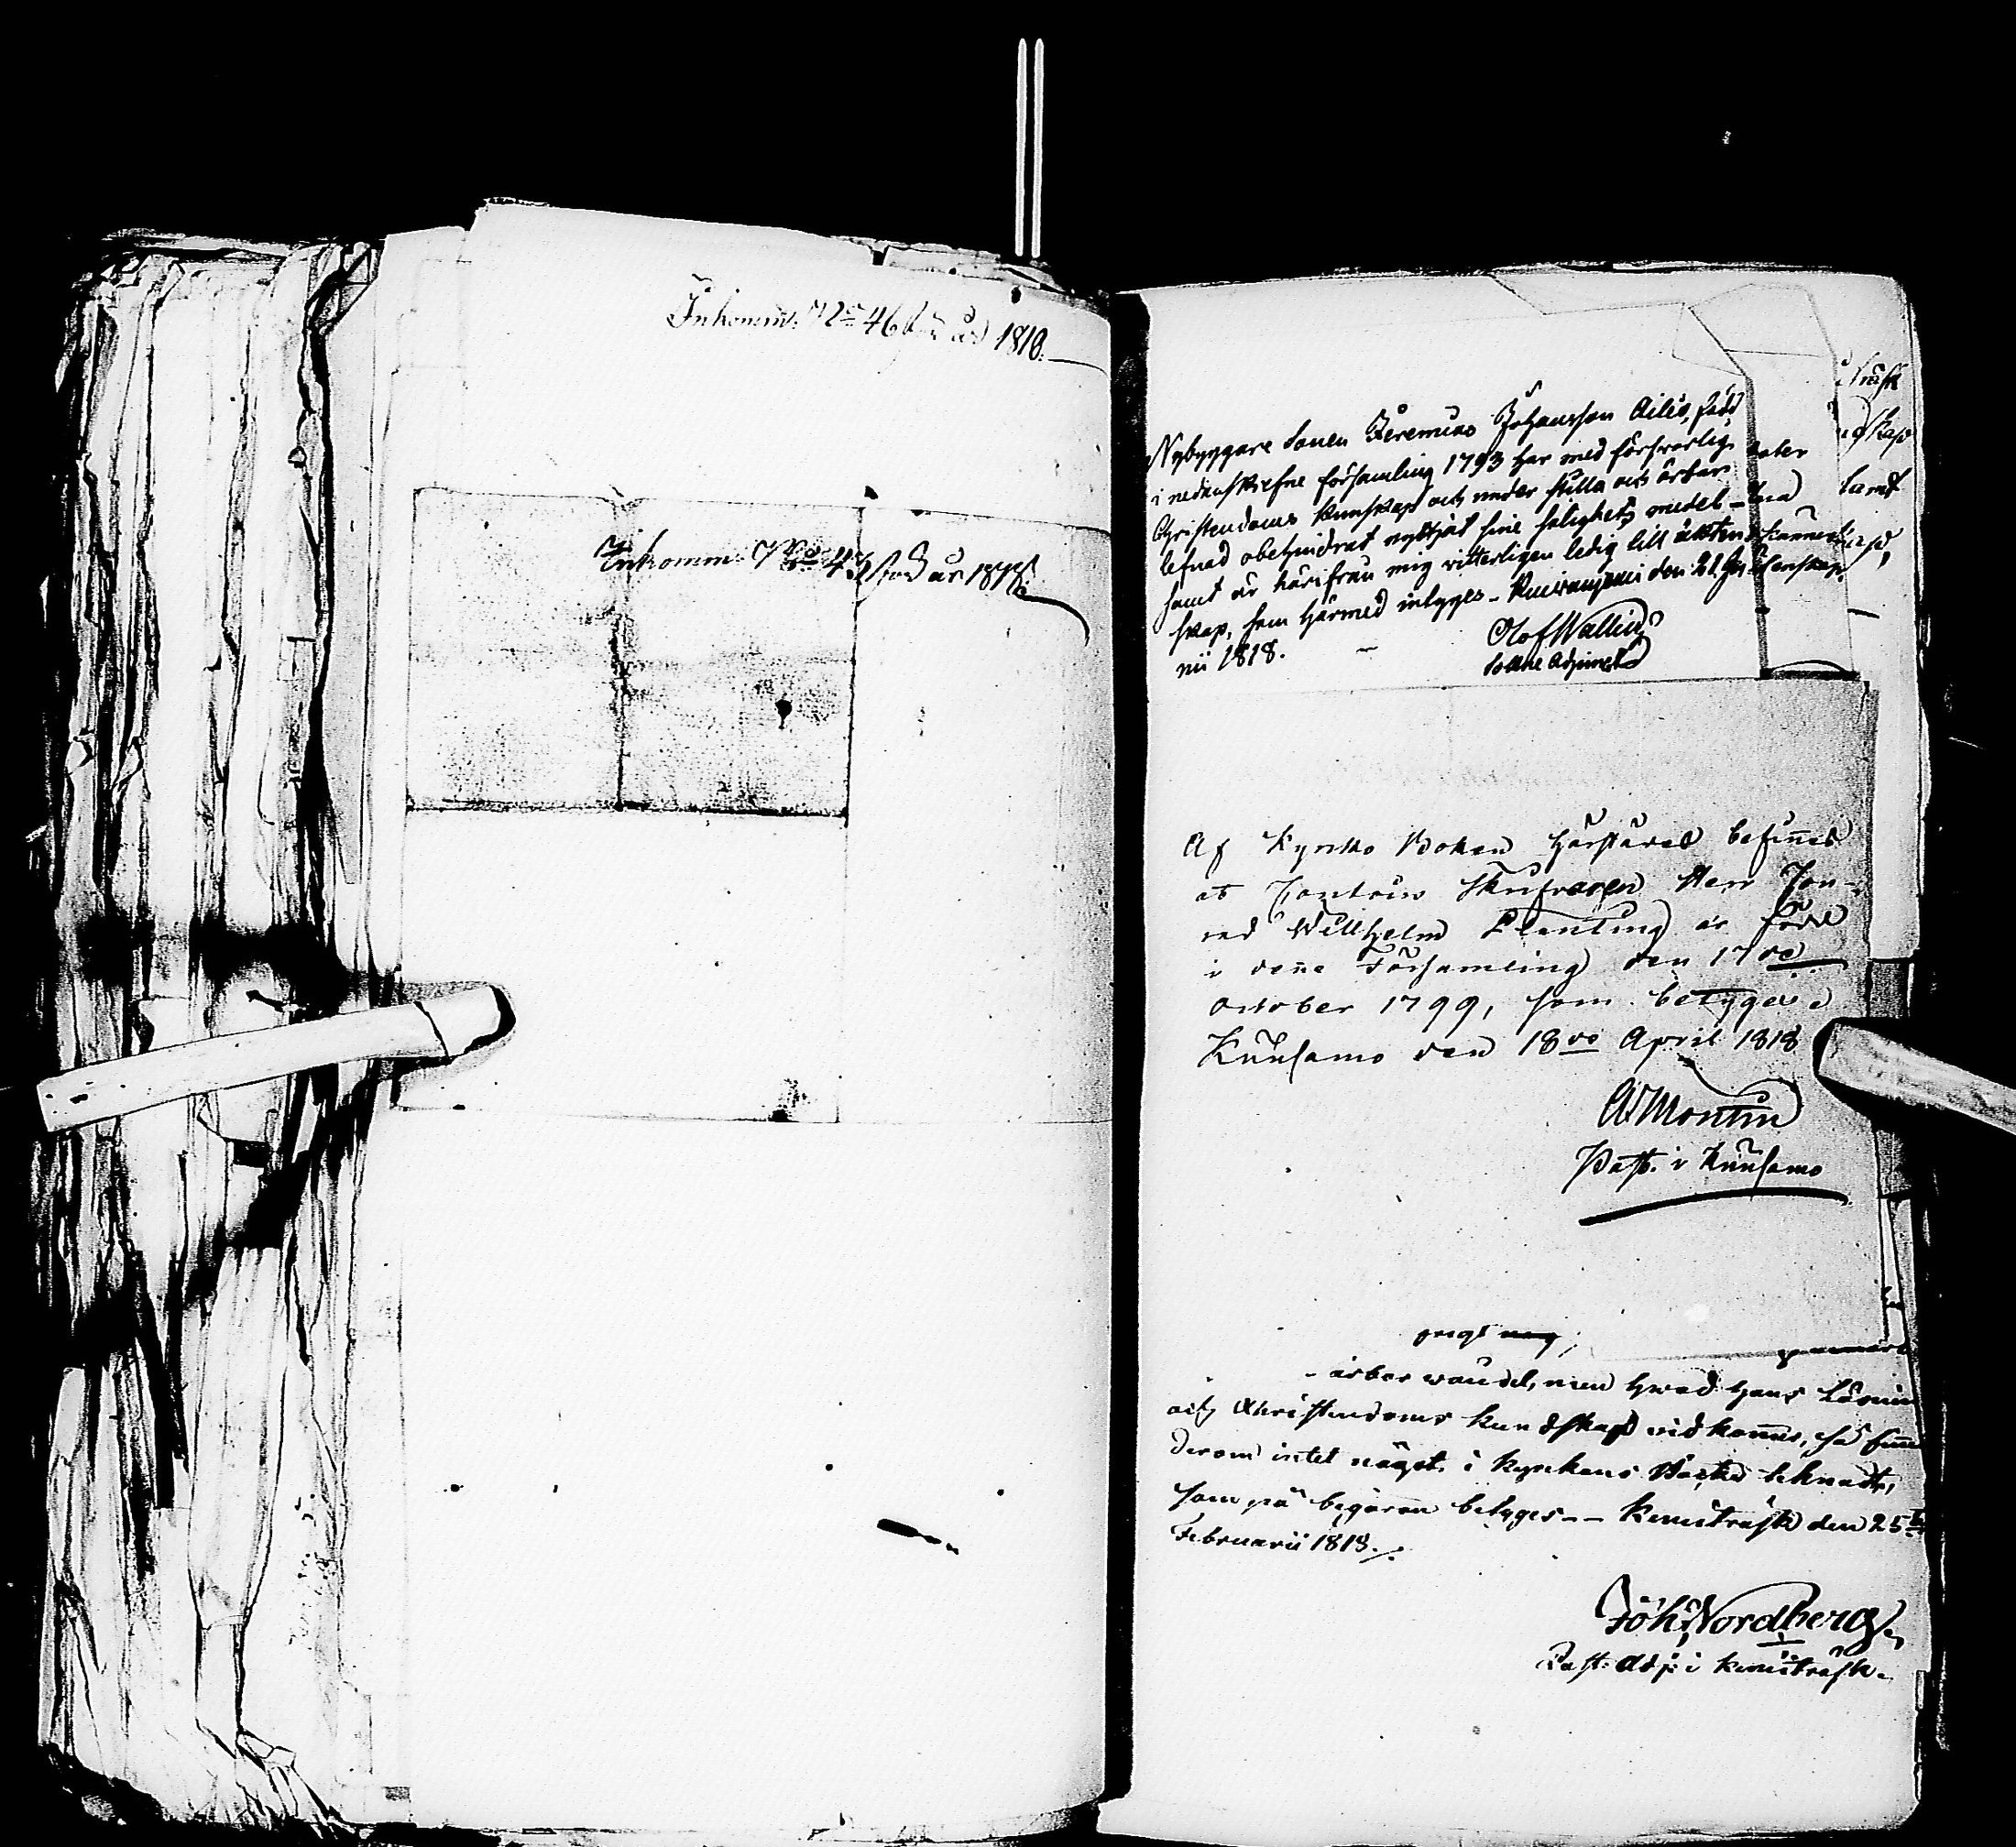 Inkomm: N 46 för år 1818.
Inkomm: N 47 för år 1818.
Nybyggare Sonen Jeremias Johansson Ailés, född
i nedanskrefne församling 1793 har med försvarlig
Christendoms kunskap och under stilla och ärbar
lefnad obehindrat nyttjat sine salighets medel
samt är härifrån mig vitterligen ledig till äkten-
skap, som härmed intyges - Kuivaniemi den 21 Ju-
nii 1818.
Olof Wallin
Adjunct
Af Kyrko Boken härstädes befinnes
at Contoirs skrifvaren Herr Con-
rad Willhelm Planting är född
i denne Församling den 17de
October 1799, som betygas i
Kuusamo den 18de April 1818
A Montin
Past. i Kuusamo
träsk
dskap
samt
ärbar wandel, men hwad hans Läsning
och Christendoms kundskap vidkommer, så finnes
derom intet någet i Kyrkans Böcker teknadt,
som på begäran betyges - - Kemiträsk den 25
Februarii 1818.
Joh: Nordberg
Past: adj: i Kemiträsk.